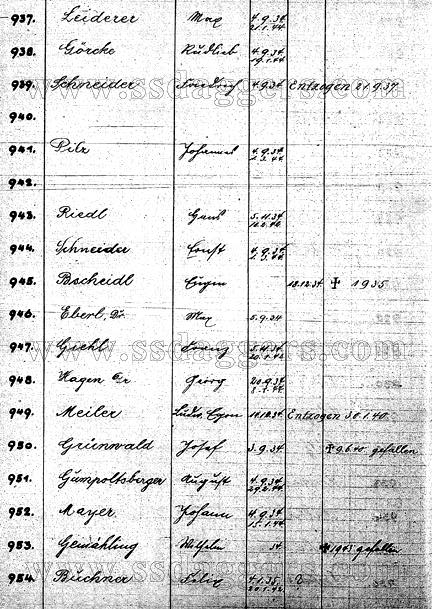 937. Leiderer Max 4.9.34
21.1.44
938. Görcke Rudlieb 4.9.34
19.1.44
939. Schneider Friedrich 4.9.34 Entzogen 21.9.37
www.ssdaggers.com
940.
941. Pilz Johannes 4.9.34
942.
943. Riedl Hans 5.11.34
944. Schneider Ernst 4.9.34
945. Bscheidl Eugen 18.12.34 ✝ 1935
946. Eberl, Dr. Max 5.9.34
947. Giehl Franz 5.11.34
20.1.44
www.ssdaggers.com
948. Hagen Dr Georg 20.9.34
949. Meiler 10.12.34 Entzogen 30.1.40.
950. Grünwald Josef 3.9.34 ✝ 9.6.40 gefallen
951. Gumpoltsberger August 4.9.34
29.2.44
952. Mayer Johann 4.9.34
15.1.44
953. Gemähling Wilhelm 34 ✝ 1943 gefallen
www.ssdaggers.com
954. Büchner Felix 4.1.35 ?
20.1.42